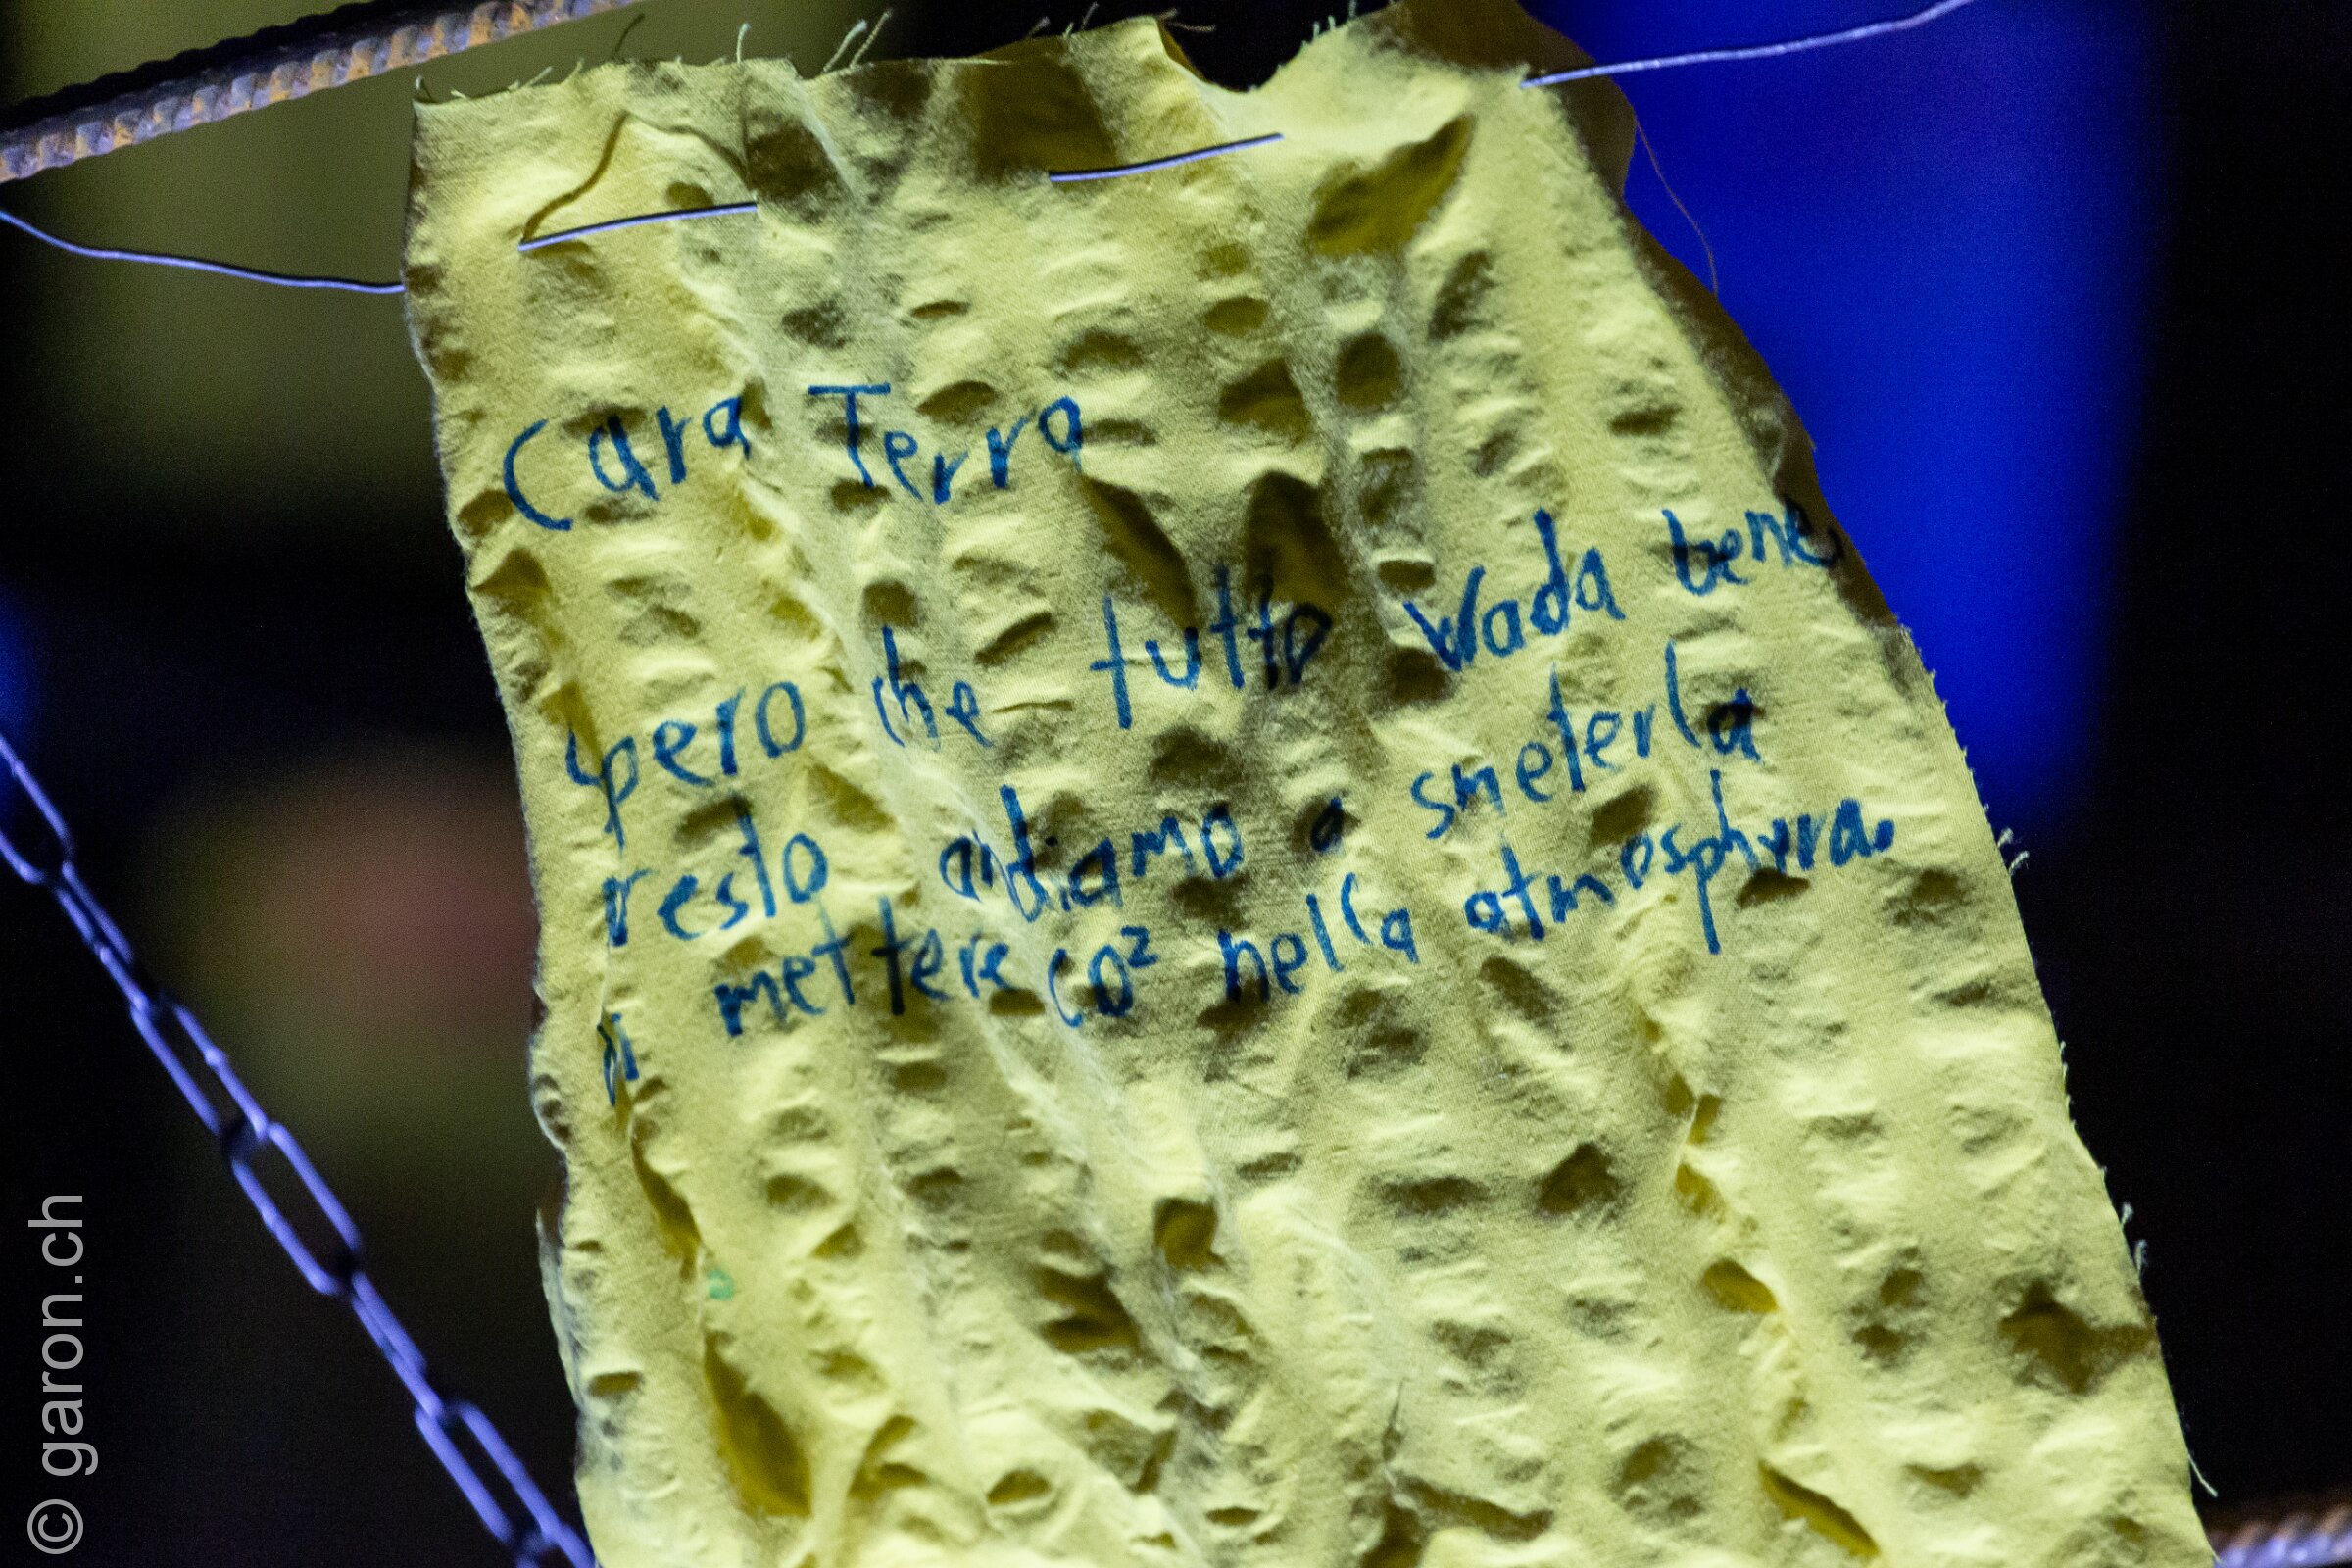 Cara Terra
spero che tutto vada bene
resto andiamo a smeterla
di mettere CO² nella atmosphera.
© garon.ch